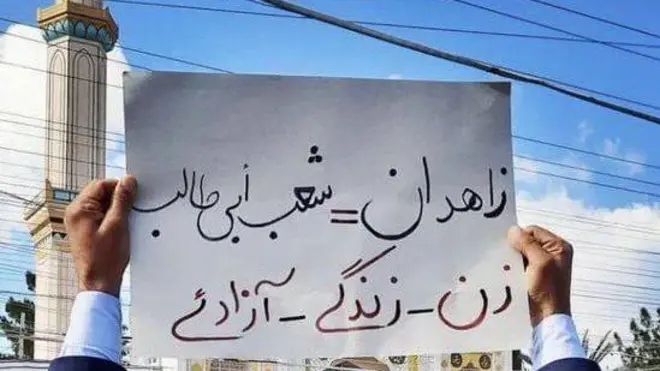 زاهدان = شعب أبی طالب
زن - زندگے - آزادئے